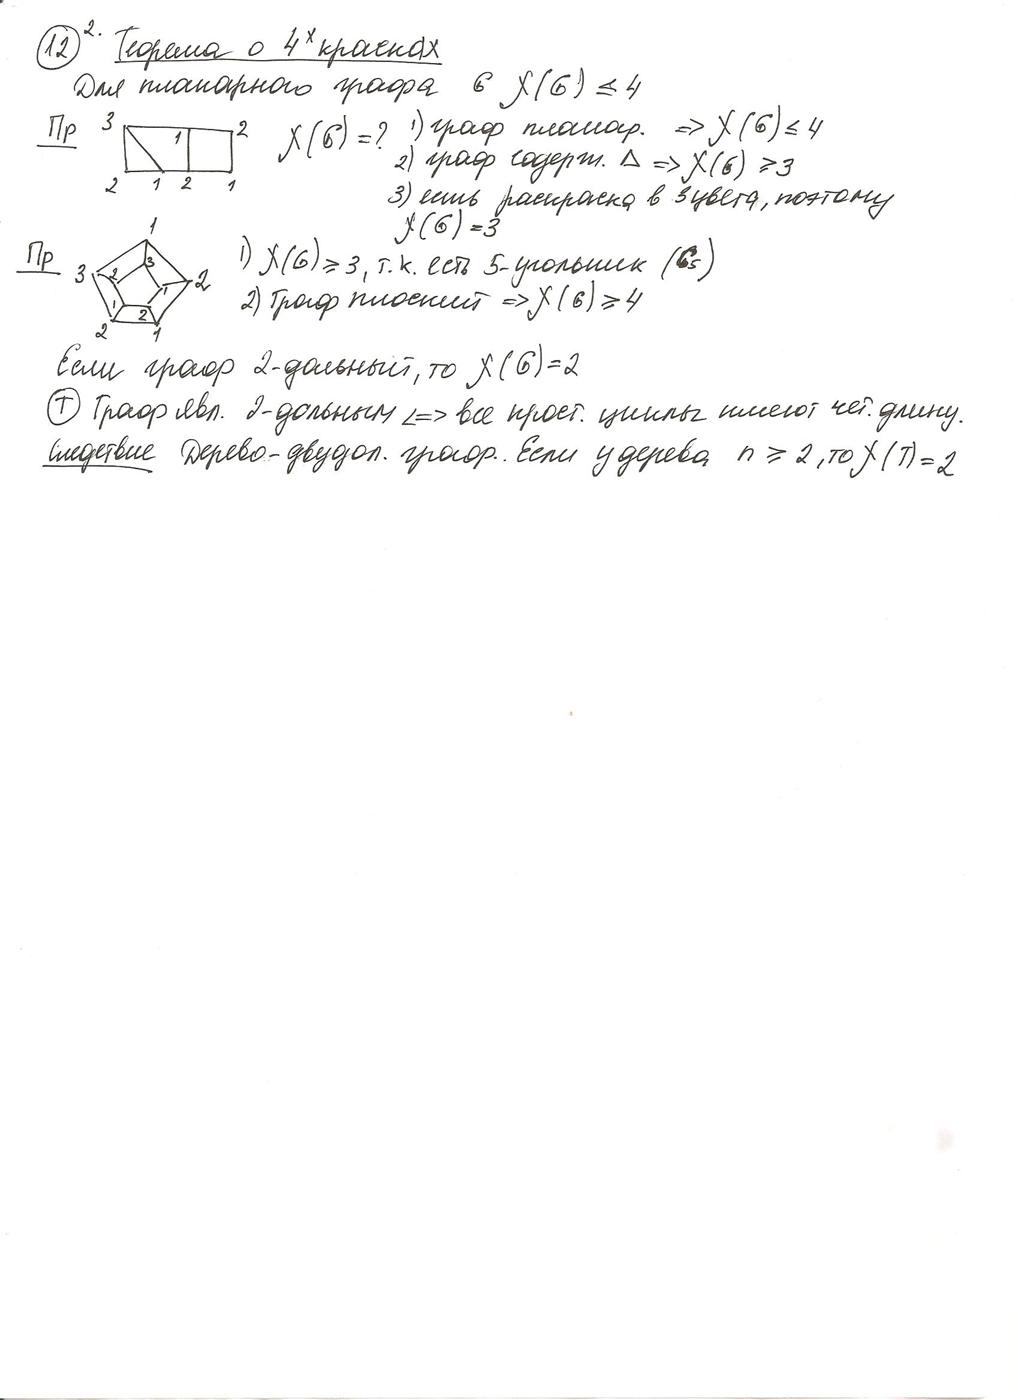 12 2. Теорема о 4х красках
Для планарного графа G χ(G) ≤ 4
Пр 3 1 2 2 1 2 1 χ(G) = ? 1) граф планар. => χ(G) ≤ 4
2) граф содерж. Δ => χ(G) ≥ 3
3) есть раскраска в 3 цвета, поэтому
χ(G) = 3
Пр 1 3 2 3 2 1 1 2 2 1 1) χ(G) ≥ 3, т.к. есть 5-угольник (C5)
2) Граф плоский => χ(G) ≥ 4
Если граф 2-дольный, то χ(G) = 2
Т Граф явл. 2-дольным <=> все прост. циклы имеют чет. длину.
Следствие Дерево - двудол. граф.. Если у дерева n ≥ 2, то χ(T) = 2